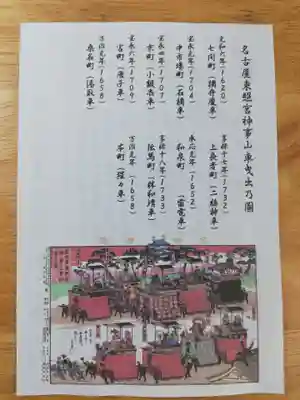 名古屋東照宮神事山車曳出乃圖
元和六年(1620)
七間町(橋弁慶車)
宝永元年(1704)
中市場町(石橋車)
宝永四年(1707)
京町(小鍛冶車)
宝永六年(1709)
宮町(唐子車)
万治元年(1658)
桑名町(湯取車)
享保十七年(1732)
上長者町(二福神車)
承応元年(1652)
和泉町(雷電車)
享保十八年(1733)
伝馬町(林和靖車)
万治元年(1658)
本町(猩々車)